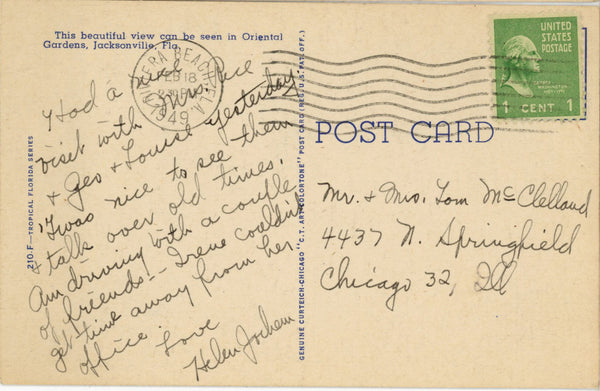 This beautiful view can be seen in Oriental
Gardens, Jacksonville, Fla.
210.F—TROPICAL FLORIDA SERIES
Had a nice
visit with Mrs.
& Geo & Louise yesterday.
'Twas nice to see them
& talk over old times.
Am driving with a couple
of friends -- Irene couldn't
get time away from her
office.
Love
Helen Jochem
RIVIERA BEACH, FLA.
FEB 18
1949
GENUINE CURTEICH-CHICAGO "C.T. ART-COLORTONE" POST CARD (REG. U.S. PAT. OFF.)
UNITED
STATES
POSTAGE
1 CENT 1
POST CARD
Mr. & Mrs. Tom McClelland
4437 N. Springfield
Chicago 32, Ill